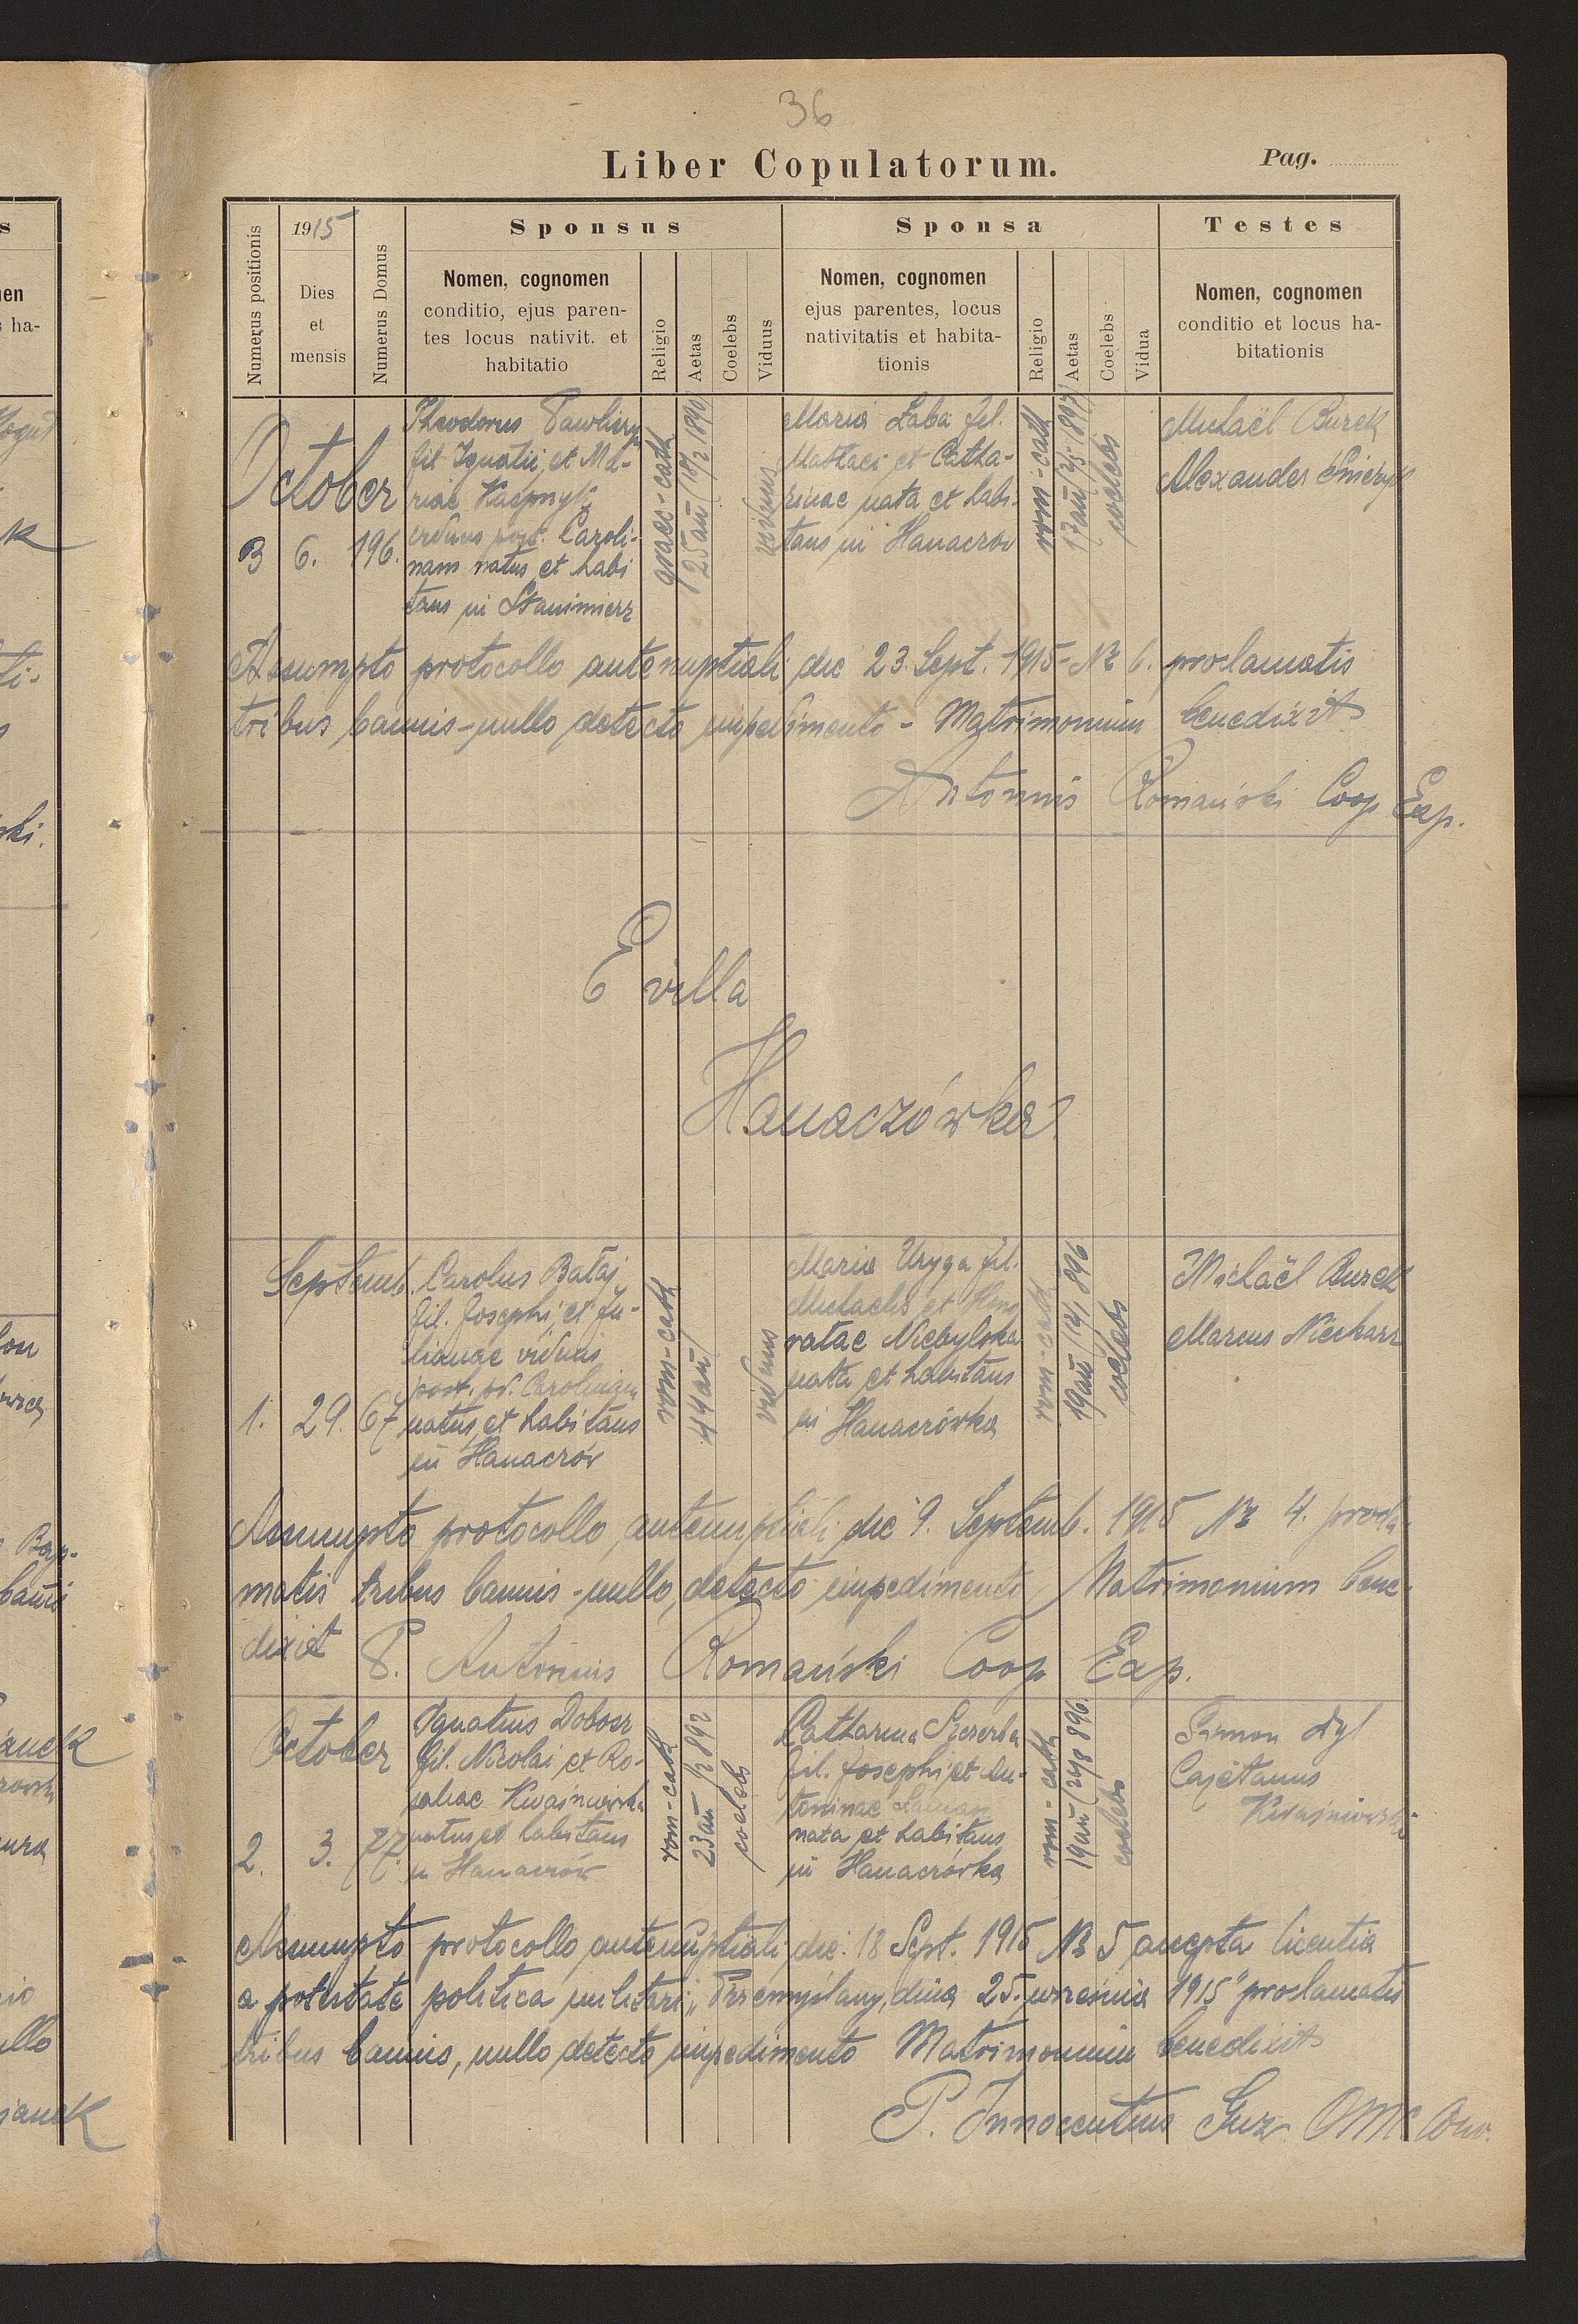 36
Liber Copulatorum.
Pag.
Numerus positionis
1915
Dies
et
mensis
Numerus Domus
Sponsus
Nomen, cognomen
conditio, ejus paren-
tes locus nativit. et
habitatio
Religio
Aetas
Coelebs
Viduus
Sponsa
Nomen, cognomen
ejus parentes, locus
nativitatis et habita-
tionis
Religio
Aetas
Coelebs
Vidua
Testes
Nomen, cognomen
conditio et locus ha-
bitationis
October
3 6. 196.
Theodorus
fil Ignatii et Ma-
riae
viduus post. Caroli-
nam natus et habi
tans in Stanimierz
graec-cath
25 an
viduus
Maria Łaba fil.
Mathaei et Catha-
rinae nata et habi-
tans in Hanaczow
rom-cath
coelebs
Michaël Burek
Alexander
Assumpto protocollo antenuptiali die 23. Sept. 1915 - Nr 6. proclamatis
tribus bannis - nullo detecto impedimento - Matrimonium benedixit
Antonius Romański Coop Exp.
E villa
Hanaczówka
Septemb.
1. 29. 67
Carolus Bataj
fil. Josephi, et Ju-
lianae viduus
post. Carolinam
natus et habitans
in Hanaczów
rom-cath
44 an
viduus
Maria Uryga fil.
Michaelis et Hono
ratae Niebylska
nata et habitans
in Hanaczówka
rom-cath
19 an 896
coelebs
Michaël Burek
Marcus Nieckarz
Assumpto protocollo, antenuptiali die 9. Septemb. 1915 Nr 4. procla-
matis tribus bannis - nullo, detecto impedimento Matrimonium bene-
dixit P. Antonius Romański Coop Exp.
October
2. 3. 77.
Ignatius Dobosz
fil. Nicolai et Ro-
saliae Kwaśniowska
natus et habitans
in Hanaczów
rom-cath
23 an 892
coelebs
Catharina Szczerba
fil. Josephi et An-
toninae
nata et habitans
in Hanaczówka
rom-cath
19 an 896.
coelebs
Simon Dyl
Cajetanus
Kwaśniowski
Assumpto protocollo antenuptiali die. 18 Sept. 1915 Nr 5 accepta licentia
a potestate politica militari „Przemyślany, dnia 25. września 1915" proclamatis
tribus bannis, nullo detecto impedimento Matrimonium benedixit
P. Innocentius Guz OMC